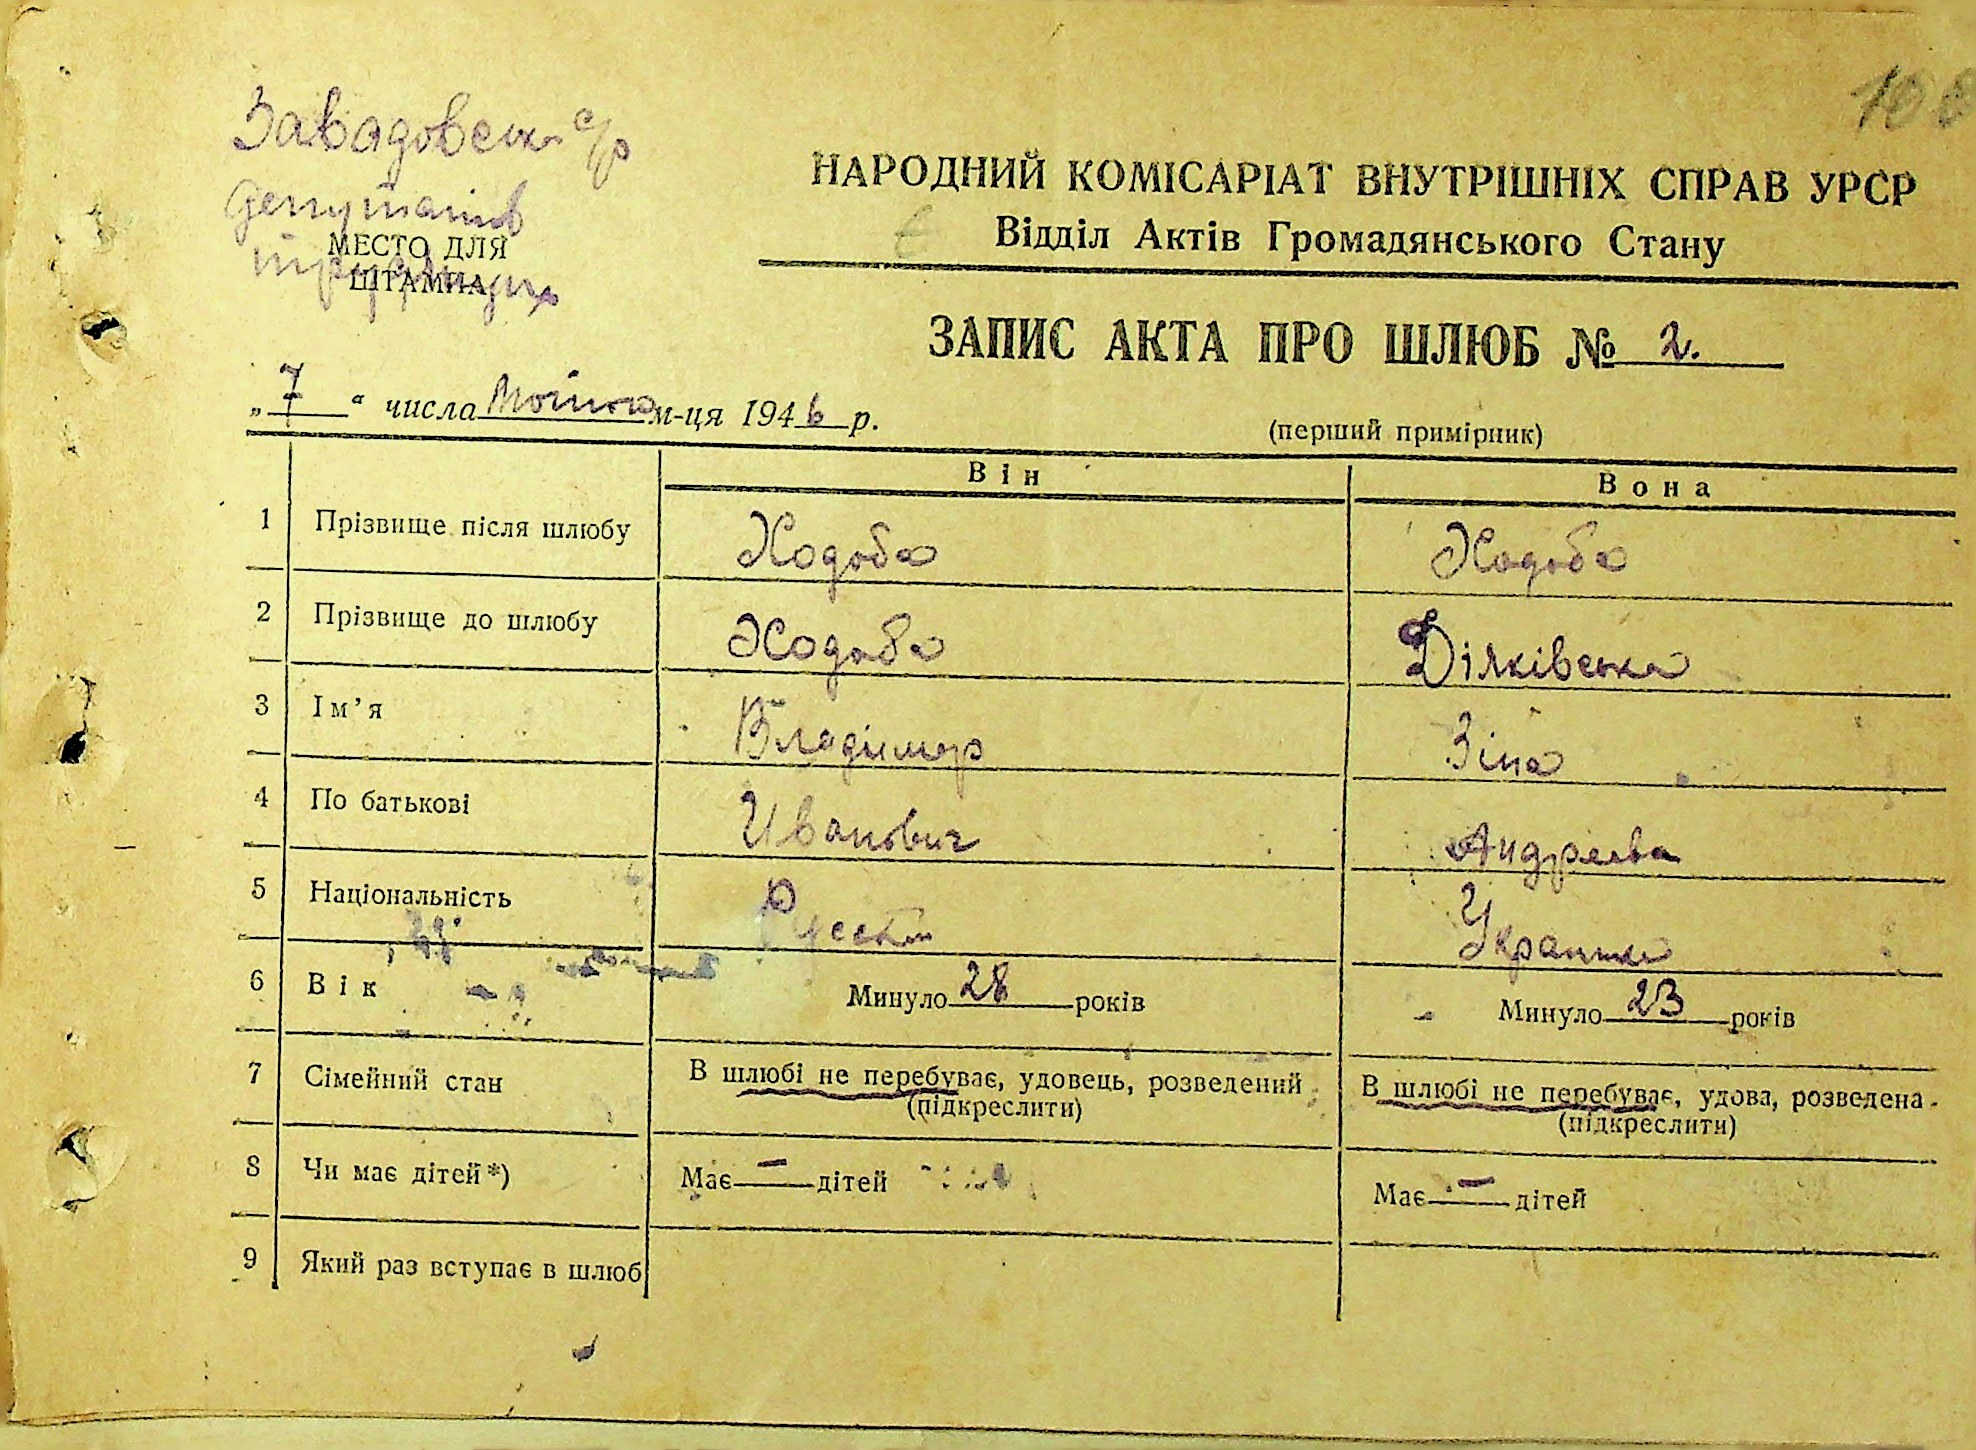 Завадовськ с/р
депутатів
МЕСТО ДЛЯ
ШТАМПА
трудящих
НАРОДНИЙ КОМІСАРІАТ ВНУТРІШНІХ СПРАВ УРСР
Відділ Актів Громадянського Стану
ЗАПИС АКТА ПРО ШЛЮБ № 2.
„ 7 “ числа м-ця 1946 р.
(перший примірник)
Він Вона
1 Прізвище після шлюбу Ходоба Ходоба
2 Прізвище до шлюбу Ходоба Ділківська
3 Ім’я Владимир Зіна
4 По батькові Иванович Андреева
5 Національність Руский Украинка
6 Вік Минуло 28 років Минуло 23 років
7 Сімейний стан В шлюбі не перебуває, удовець, розведений В шлюбі не перебуває, удова, розведена
(підкреслити) (підкреслити)
8 Чи має дітей*) Має — дітей Має — дітей
9 Який раз вступає в шлюб